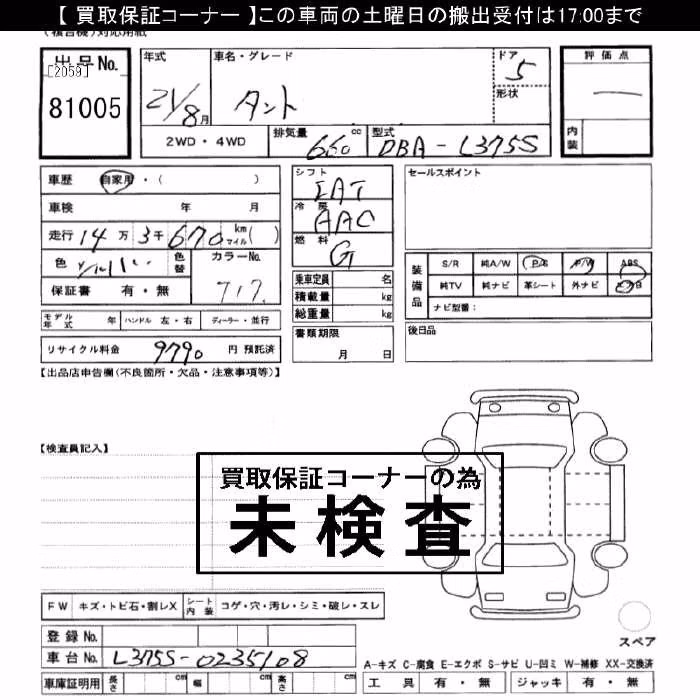 【 買取保証コーナー 】この車両の土曜日の搬出受付は17:00まで
(複合機)対応用紙
出品No. [2059] 81005
年式 21/8月
車名・グレード タント
ドア 5
形状
評価点 ー
内装
2WD・4WD
排気量 660 cc
型式 DBA-L375S
車歴 自家用・( )
車検 年 月
走行 14万 3千 670 km マイル ( )
色
色替
カラーNo. 717
保証書 有・無
シフト IAT
冷房 AAC
燃料 G
乗車定員 名
積載量 kg
総重量 kg
セールスポイント
装備品
S/R 純A/W P/S P/W ABS
純TV 純ナビ 革シート 外ナビ エアB
ナビ型番:
モデル年式 年 ハンドル 左・右 ディーラー・並行
書類期限 月 日
後日品
リサイクル料金 9790 円 預託済
【出品店申告欄(不良箇所・欠品・注意事項等)】
【検査員記入】
買取保証コーナーの為
未検査
FW キズ・トビ石・割レX シート内装 コゲ・穴・汚レ・シミ・破レ・スレ
登録 No.
車台 No. L375S-0235108
車庫証明用 長さ cm 幅 cm 高さ cm
スペア
A-キズ C-腐食 E-エクボ S-サビ U-凹ミ W-補修 XX-交換済
工具 有・無 ジャッキ 有・無